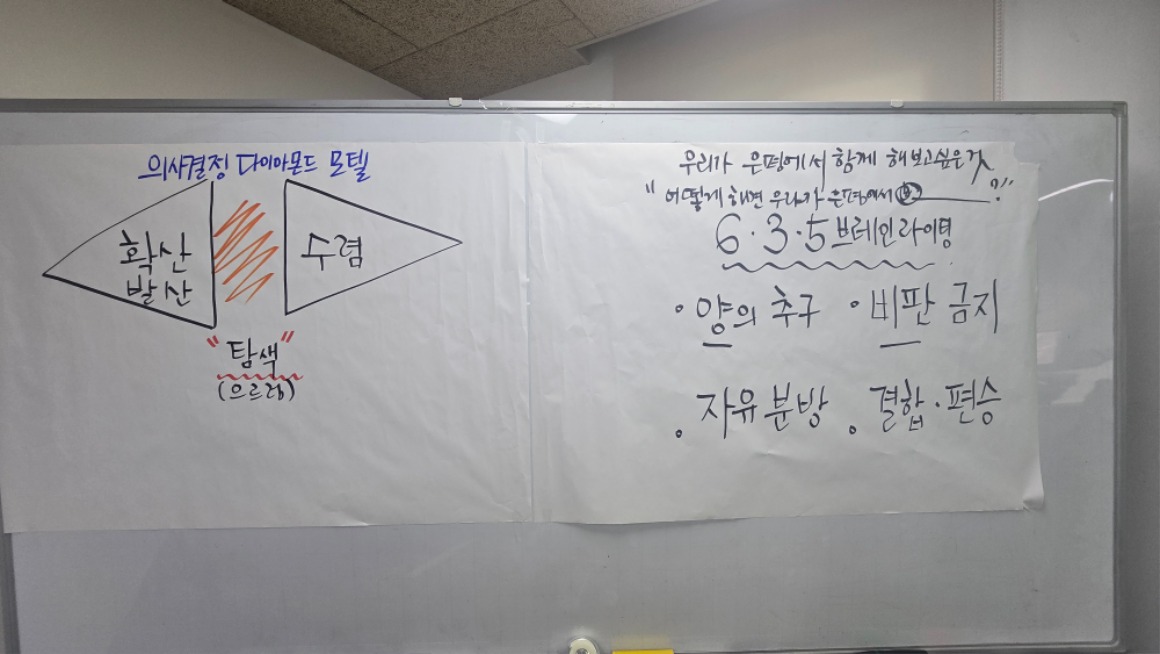 의사결정 다이아몬드 모델
확산
발산
수렴
"탐색"
(으르렁)
우리가 은평에서 함께 해보고싶은것
"어떻게 해면 우리가 은평에서 ?!"
6·3·5 브레인라이팅
• 양의 추구 • 비판 금지
• 자유분방 • 결합·편승